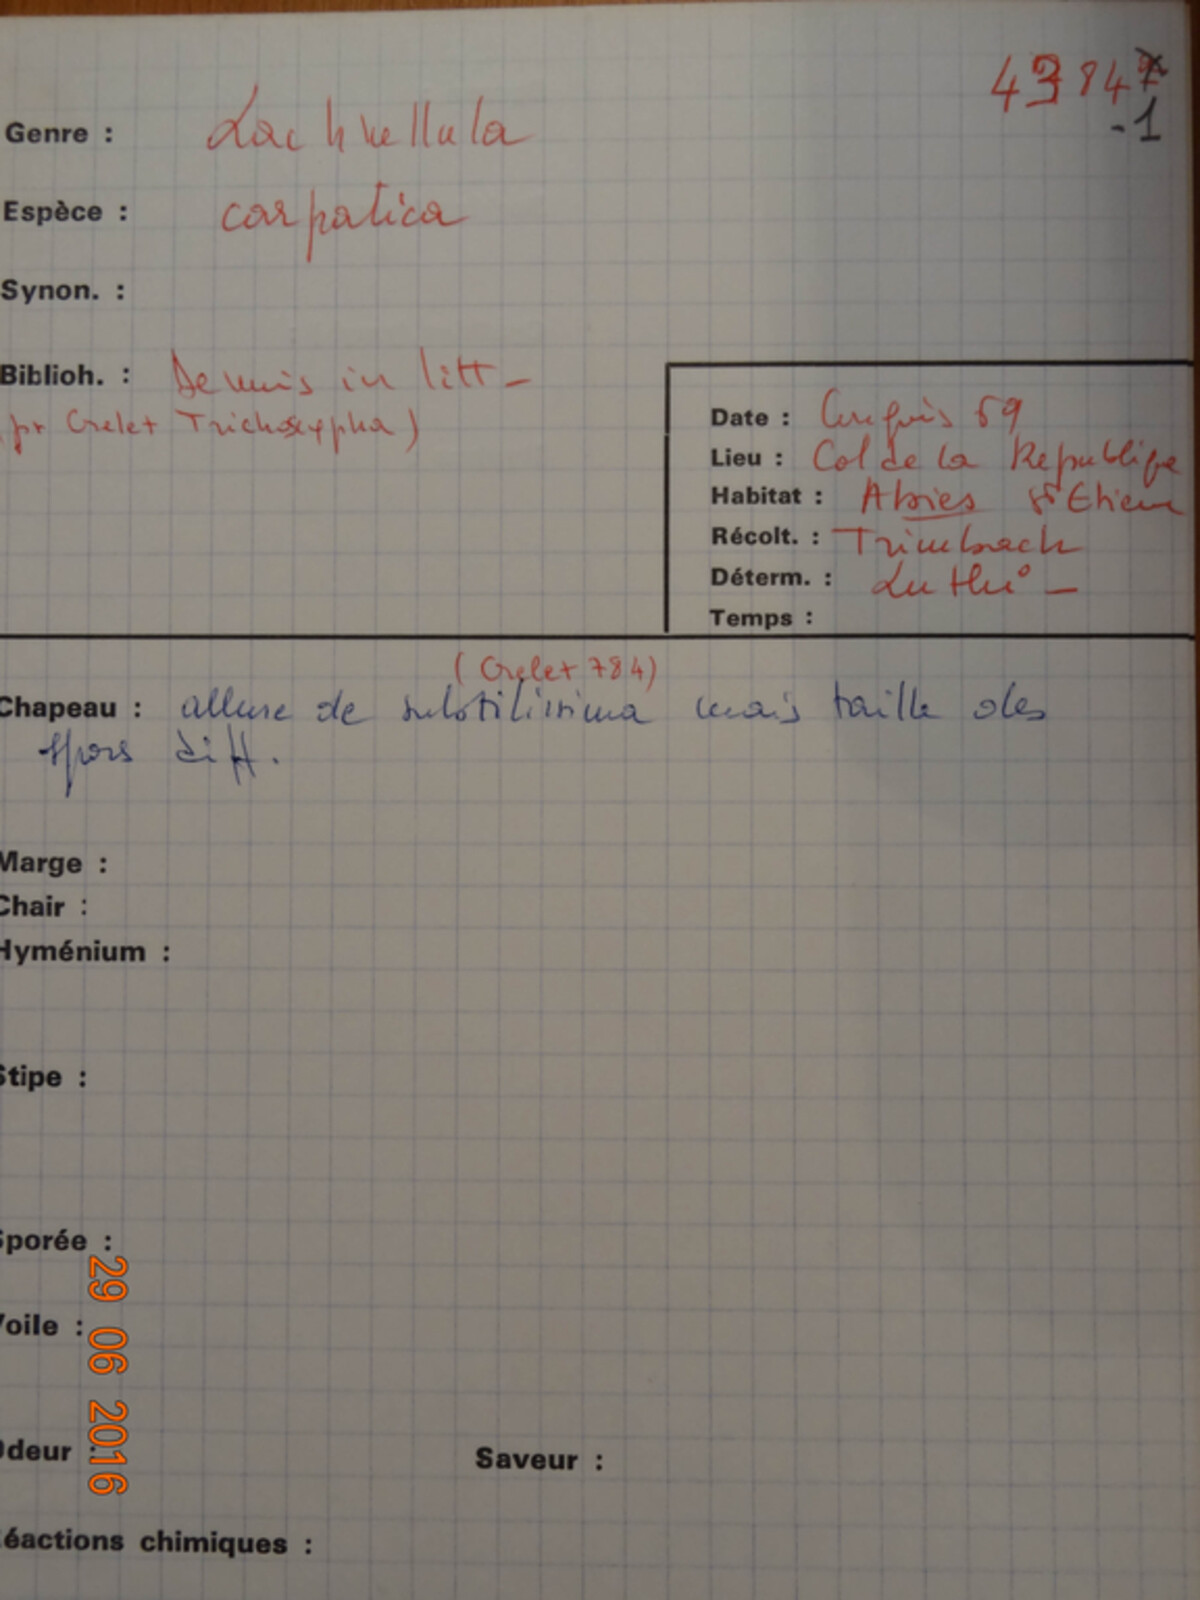 4384
-1
Genre : Lachnellula
Espèce : carpatica
Synon. :
Biblioh. : Dennis in litt -
(pr Grelet Trichoscypha)
Date : 69
Lieu : Col de la Republique
Habitat : Abies St Etienne
Récolt. : Trimbach
Déterm. : Luthi -
Temps :
(Grelet 784)
Chapeau : allure de subtilissima mais taille des
spores diff.
Marge :
Chair :
Hyménium :
Stipe :
Sporée :
Voile :
Odeur :
Saveur :
Réactions chimiques :
29 06 2016